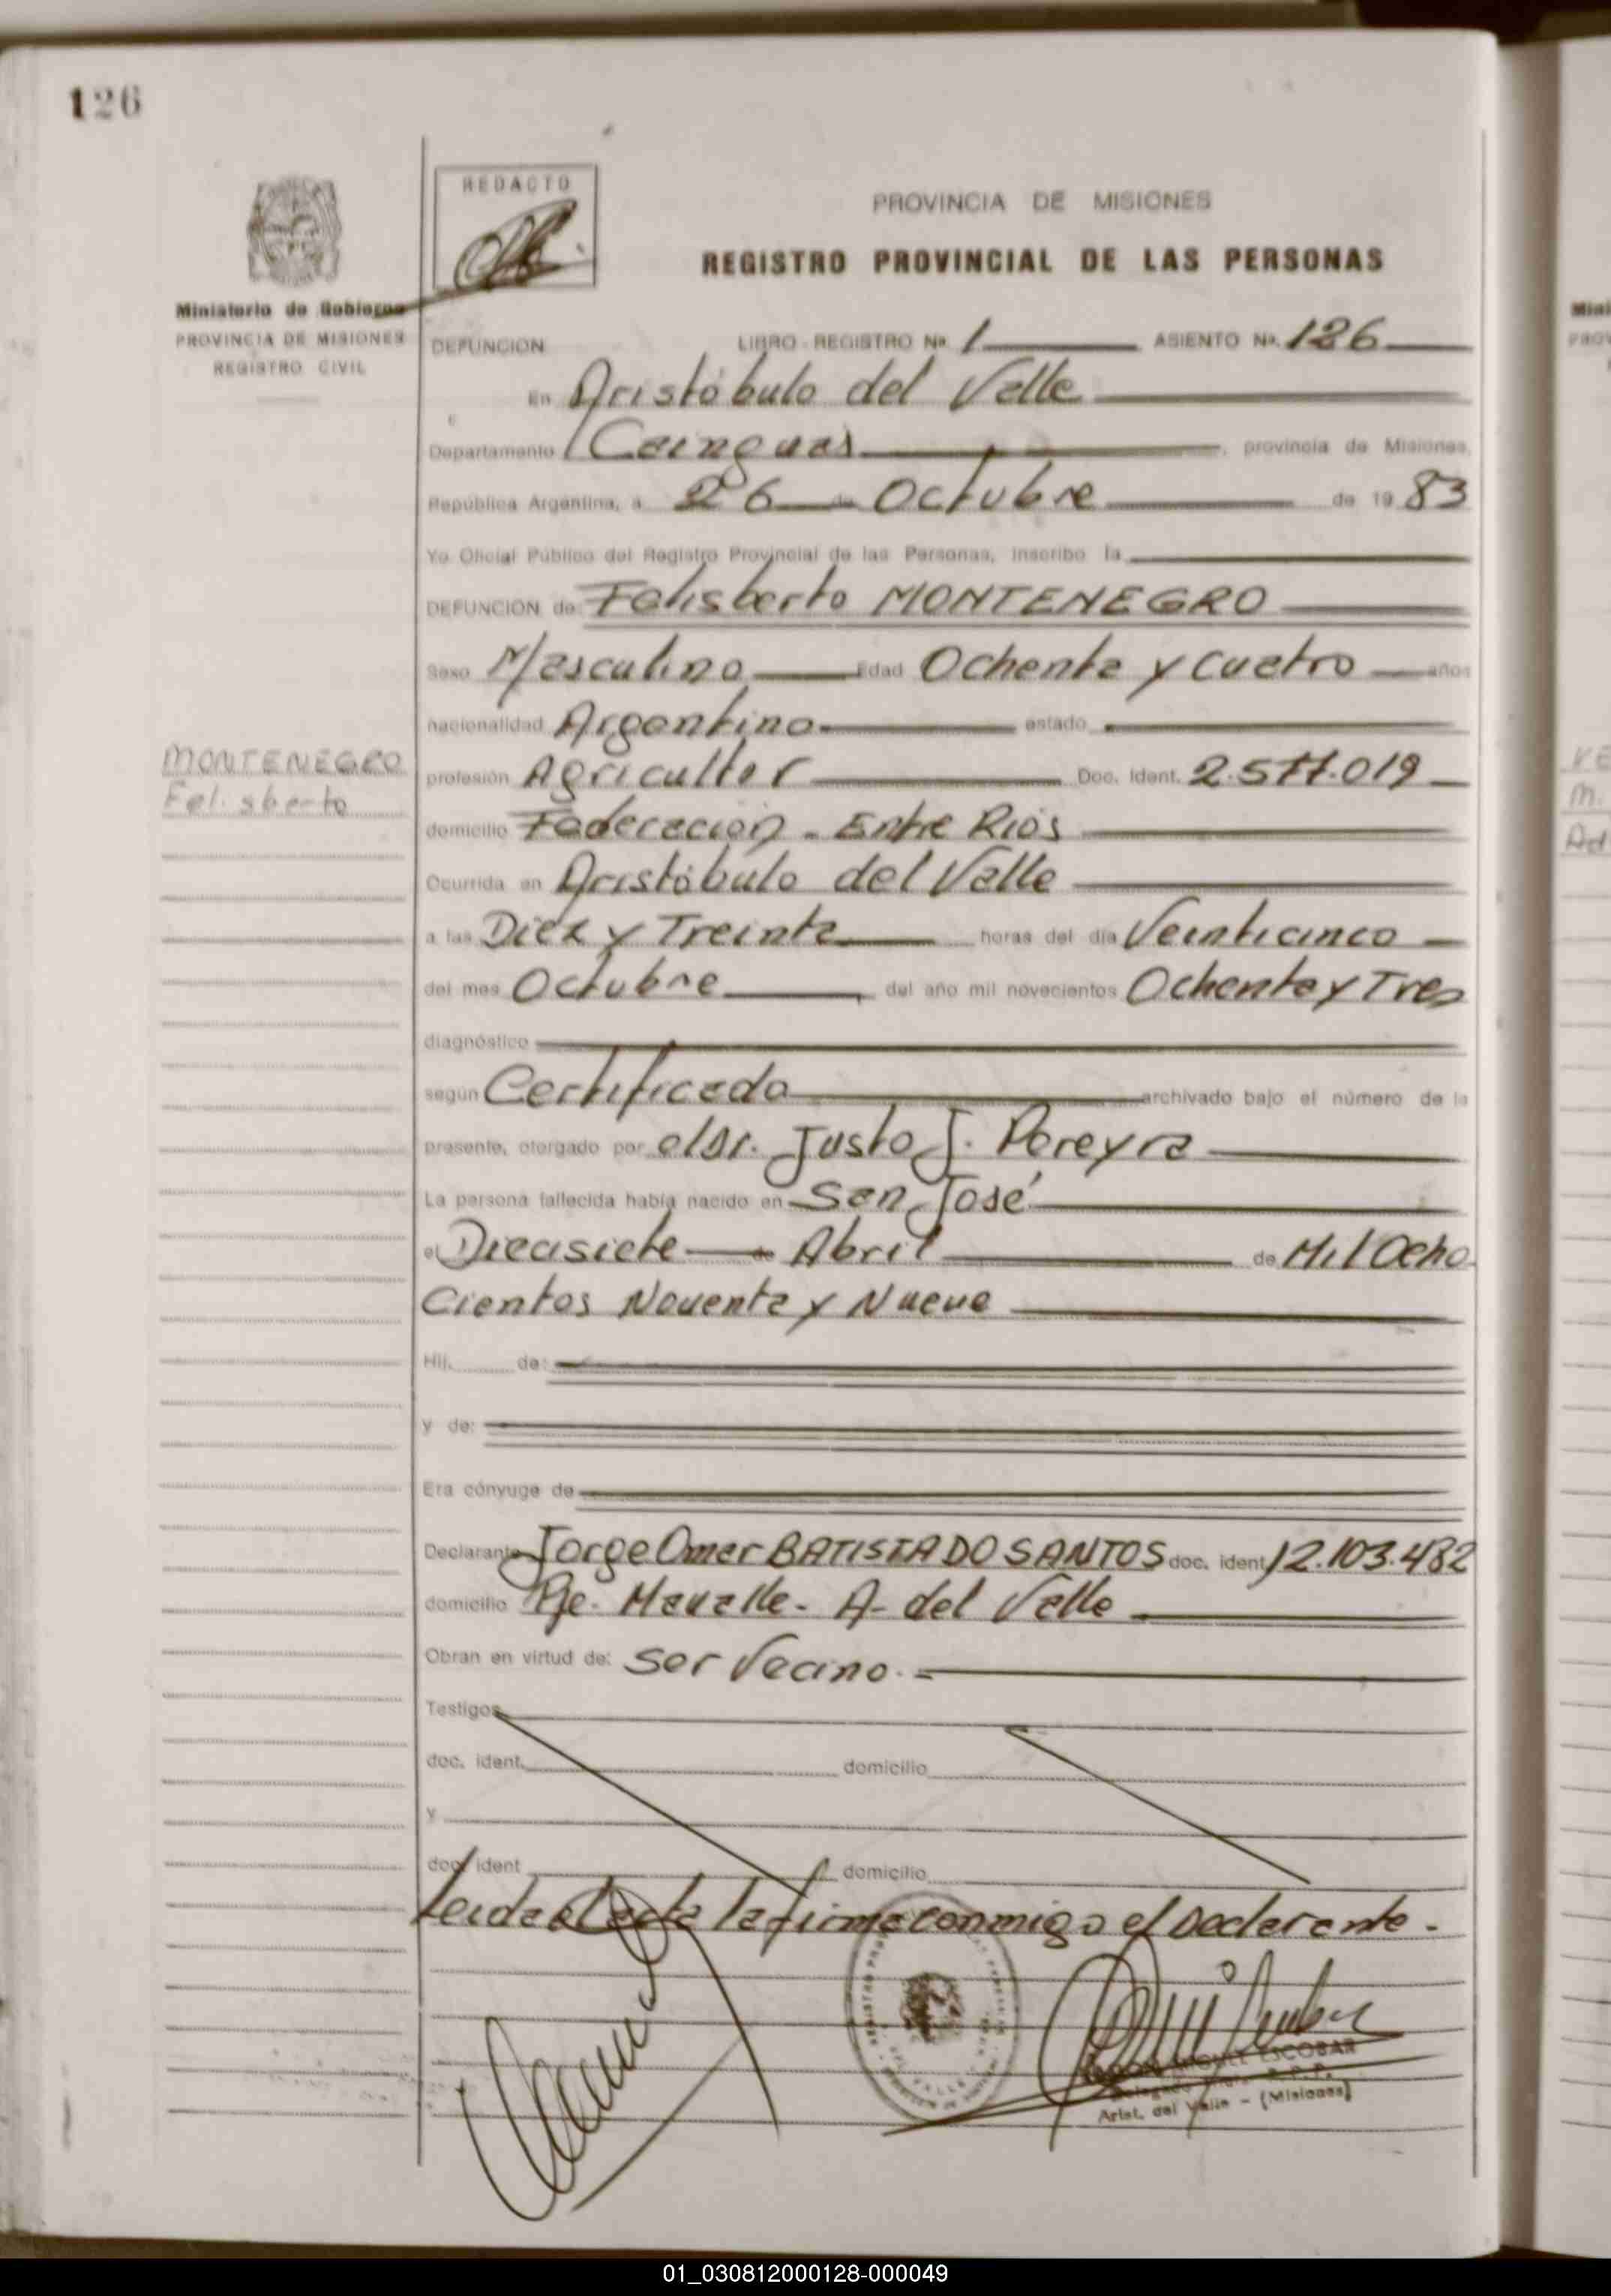 126
REDACTO
PROVINCIA DE MISIONES
REGISTRO PROVINCIAL DE LAS PERSONAS
Ministerio de Gobierno
PROVINCIA DE MISIONES
REGISTRO CIVIL
DEFUNCION LIBRO - REGISTRO Nº 1 ASIENTO Nº 126
En Aristóbulo del Valle
Departamento Cainguas, provincia de Misiones,
República Argentina, a 26 de Octubre de 19 83
Yo Oficial Público del Registro Provincial de las Personas, inscribo la
DEFUNCION de Felisberto MONTENEGRO
Sexo Masculino Edad Ochenta y Cuatro años
nacionalidad Argentino estado
MONTENEGRO
Felisberto
profesión Agricultor Doc. Ident. 2.577.019
domicilio Federación - Entre Ríos
Ocurrida en Aristóbulo del Valle
a las Diez y Treinta horas del día Veinticinco
del mes Octubre, del año mil novecientos Ochenta y Tres
diagnóstico
según Certificado archivado bajo el número de la
presente, otorgado por el Dr. Justo J. Pereyra
La persona fallecida había nacido en San José
el Diecisiete de Abril de Mil Ocho
Cientos Noventa y Nueve
Hij. de:
y de:
Era cónyuge de
Declarante Jorge Omar BATISTA DO SANTOS doc. ident. 12.103.482
domicilio Pje. Mavalle - A. del Valle
Obran en virtud de: ser Vecino.-
Testigos
doc. ident. domicilio
y
doc. ident domicilio
Leida el Acta la firma conmigo el Declarante.-
ESCOBAR
Arist. del Valle - (Misiones)
01_030812000128-000049